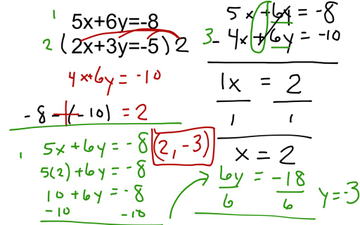 1 5x+6y=-8
2 (2x+3y=-5)2
4x+6y = -10
-8 - (-10) = 2
1 5x+6y = -8
5(2)+6y = -8
10+6y = -8
-10 -10
(2,-3)
5x+6y = -8
3 - 4x+6y = -10
1x = 2
1 1
x = 2
6y = -18
6 6
y=-3